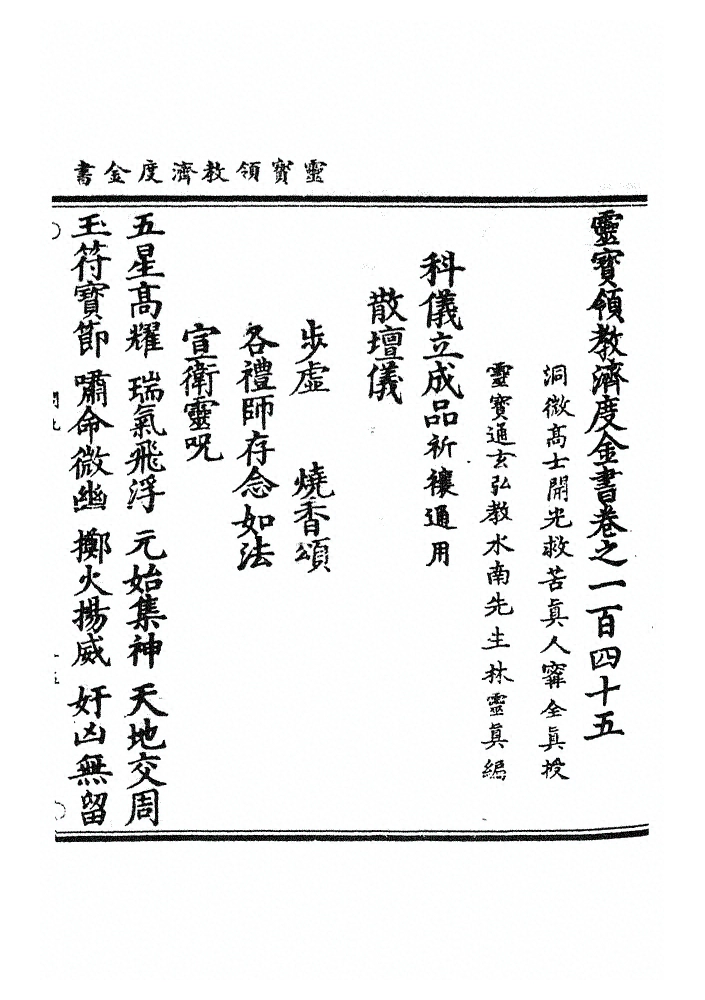 靈寶領教濟度金書
靈寶領教濟度金書卷之一百四十五
洞微高士開光救苦眞人甯全眞授
靈寶通玄弘教水南先生林靈眞編
科儀立成品祈禳通用
散壇儀
步虛 燒香頌
各禮師存念如法
宣衛靈呪
五星高耀 瑞氣飛浮 元始集神 天地交周
玉符寶節 嘯命微幽 擲火揚威 奸凶無留